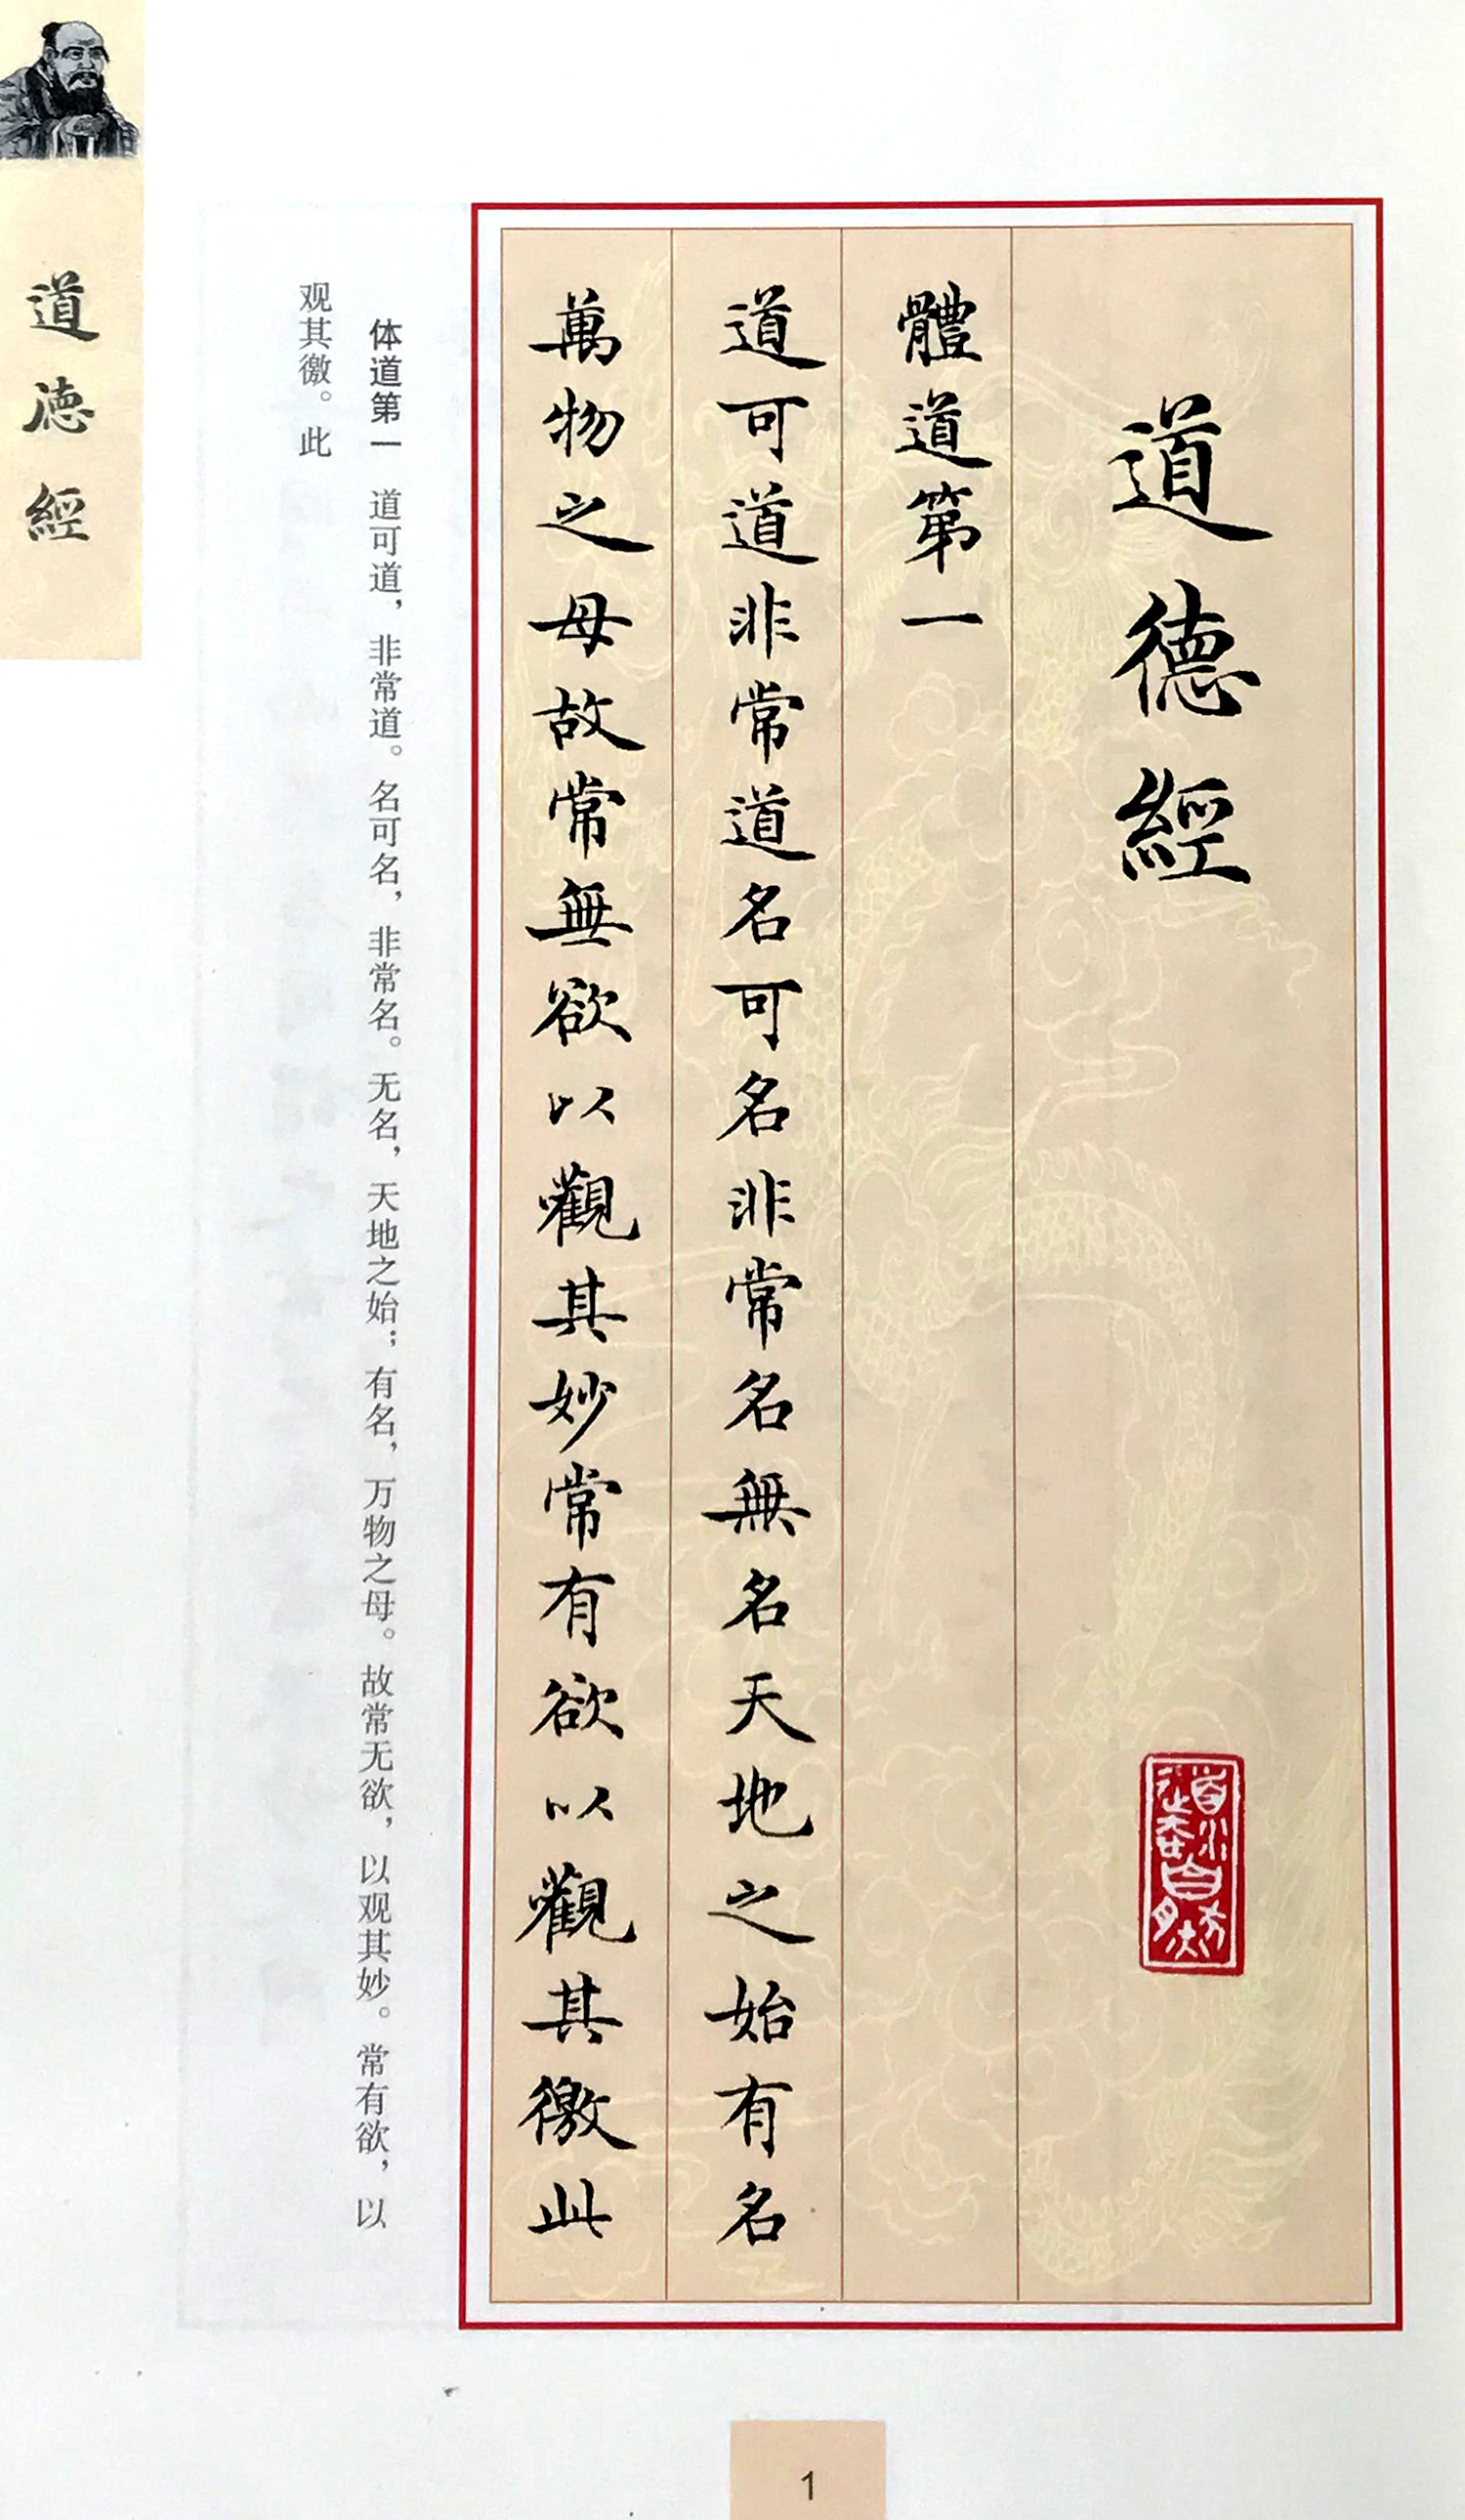 道德經
體道第一
道可道非常道名可名非常名無名天地之始有名
萬物之母故常無欲以觀其妙常有欲以觀其徼此
体道第一　道可道，非常道。名可名，非常名。无名，天地之始；有名，万物之母。故常无欲，以观其妙。常有欲，以
观其徼。此
道德經
1